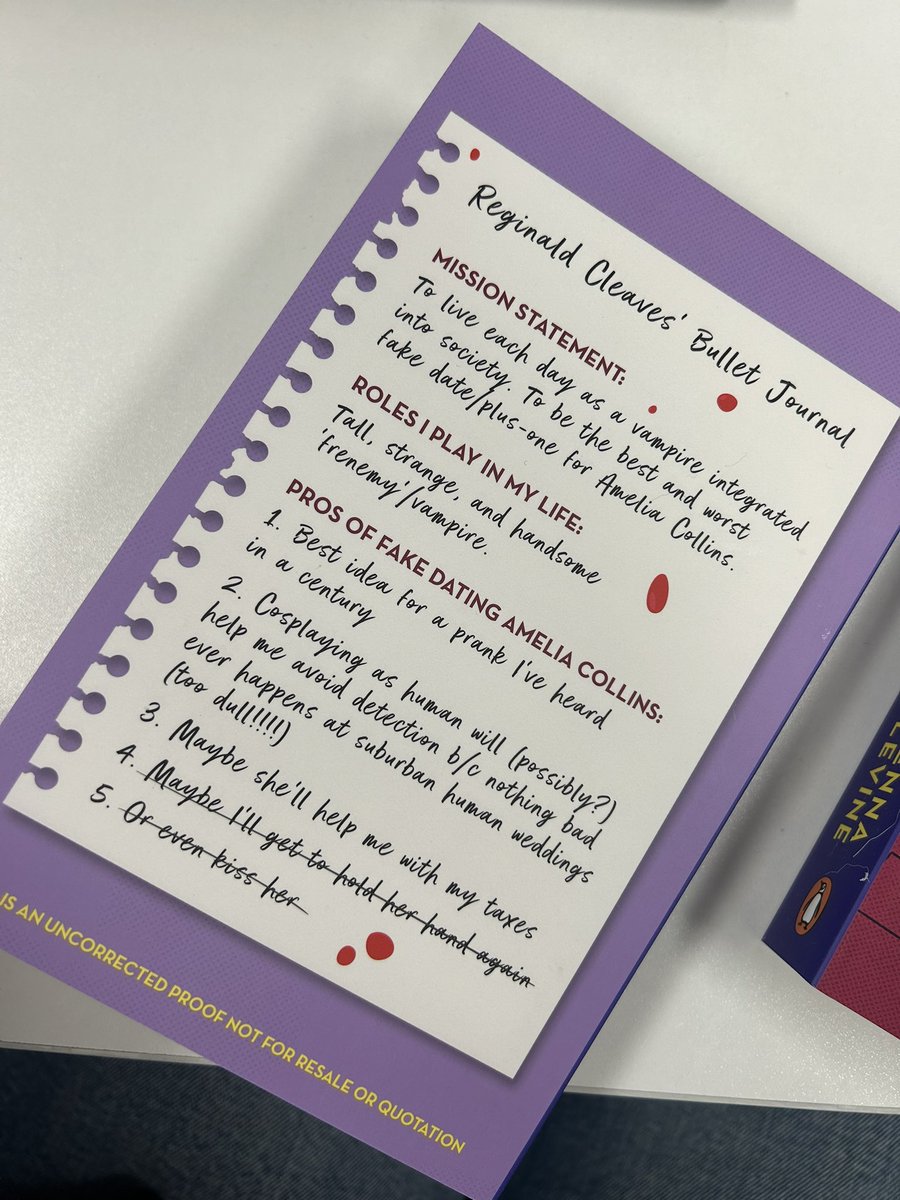 Reginald Cleaves' Bullet Journal
MISSION STATEMENT:
To live each day as a vampire integrated
into society. To be the best and worst
fake date/plus-one for Amelia Collins.
ROLES I PLAY IN MY LIFE:
Tall, strange, and handsome
'frenemy'/vampire.
PROS OF FAKE DATING AMELIA COLLINS:
1. Best idea for a prank I've heard
in a century
2. Cosplaying as human will (possibly?)
help me avoid detection b/c nothing bad
ever happens at suburban human weddings
(too dull!!!!)
3. Maybe she'll help me with my taxes
4. Maybe I'll get to hold her hand again
5. Or even kiss her
IS AN UNCORRECTED PROOF NOT FOR RESALE OR QUOTATION
ENNA
LEVINE